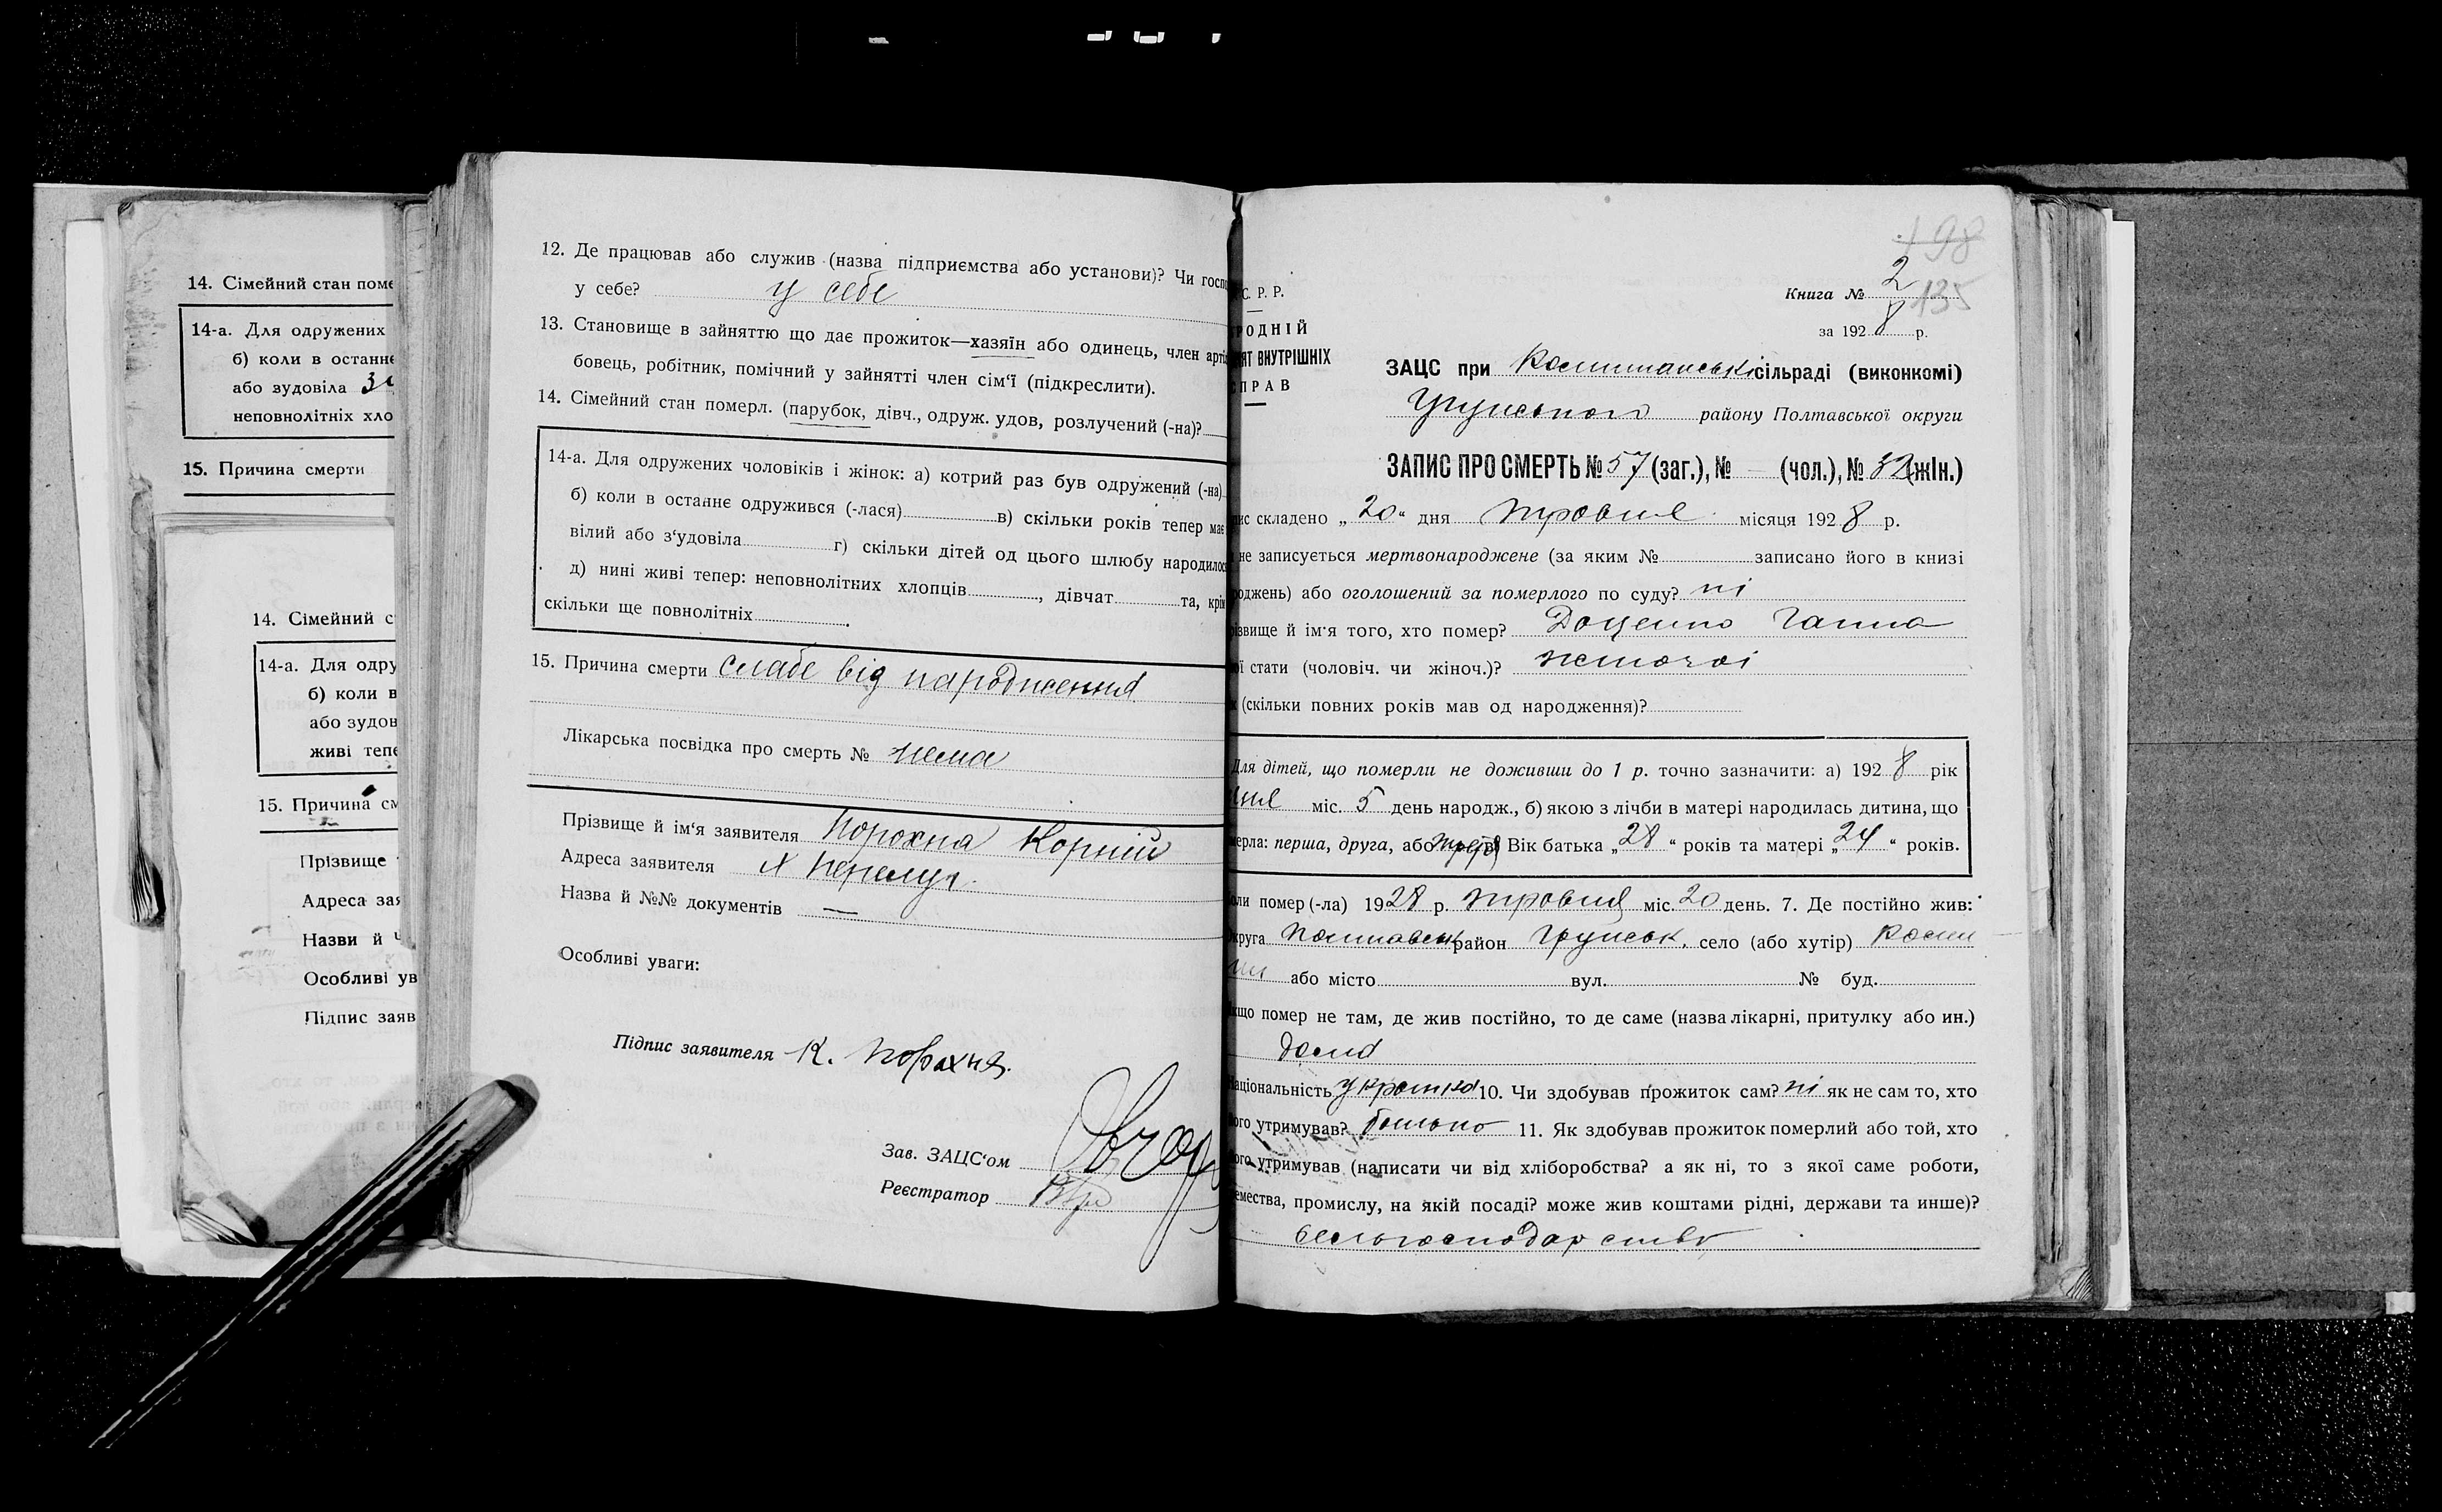 14. Сімейний стан поме
14-а. Для одружених
б) коли в останнє
або зудовіла
неповнолітніх хло
15. Причина смерти
14. Сімейний с
14-а. Для одру
б) коли в
або зудов
живі тепе
15. Причина см
Прізвище
Адреса зая
Назви й
Особливі ув
Підпис заяв
12. Де працював або служив (назва підприємства або установи)? Чи госп
у себе? у себе
13. Становище в зайняттю що дає прожиток—хазяїн або одинець, член арті
бовець, робітник, помічний у зайнятті член сім'ї (підкреслити).
14. Сімейний стан померл. (парубок, дівч., одруж. удов, розлучений (-на)?
14-а. Для одружених чоловіків і жінок: а) котрий раз був одружений (-на)
б) коли в останнє одружився (-лася) в) скільки років тепер має
вілий або з'удовіла г) скільки дітей од цього шлюбу народилос
д) нині живі тепер: неповнолітних хлопців , дівчат та, крім
скільки ще повнолітніх .
15. Причина смерти слабе від народження
Лікарська посвідка про смерть № нема
Прізвище й ім'я заявителя Порохня Корній
Адреса заявителя х
Назва й №№ документів —
Особливі уваги:
Підпис заявителя К. Порохня.
Зав. ЗАЦС'ом
Реєстратор
С. Р. Р.
РОДНІЙ
ЯТ ВНУТРІШНІХ
ПРАВ
198
Книга № 2 135
за 192 8 р.
ЗАЦС при сільраді (виконкомі)
району Полтавської округи
ЗАПИС ПРО СМЕРТЬ № 57 (заг.), № — (чол.), № 32 (жін.)
ис складено „ 20 “ дня травня місяця 192 8 р.
не записується мертвонароджене (за яким № записано його в книзі
роджень) або оголошений за померлого по суду? ні
ізвище й ім'я того, хто помер? Доценко Ганна
ої стати (чоловіч. чи жіноч.)? жіночої
(скільки повних років мав од народження)?
Для дітей, що померли не доживши до 1 р. точно зазначити: а) 192 8 рік
міс. 5 день народж., б) якою з лічби в матері народилась дитина, що
мерла: перша, друга, або третя Вік батька „ 28 “ років та матері „ 24 “ років.
оли помер (-ла) 19 28 р. травня міс. 20 день. 7. Де постійно жив:
круга Полтавськ район Грунськ. село (або хутір)
або місто вул. № буд.
кщо помер не там, де жив постійно, то де саме (назва лікарні, притулку або ин.)
дома
аціональність українка 10. Чи здобував прожиток сам? ні як не сам то, хто
ого утримував? батько 11. Як здобував прожиток померлий або той, хто
ого утримував (написати чи від хліборобства? а як ні, то з якої саме роботи,
емества, промислу, на якій посаді? може жив коштами рідні, держави та инше)?
сільгосподарство